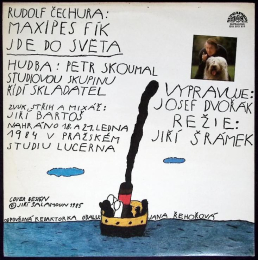 RUDOLF ČECHURA:
MAXIPES FÍK
JDE DO SVĚTA
HUDBA: PETR SKOUMAL
STUDIOVOU SKUPINU
ŘÍDÍ SKLADATEL
ZVUK, STŘIH A MIXÁŽ:
JIŘÍ BARTOŠ
NAHRÁNO 18. A 21. LEDNA
1984 V PRAŽSKÉM
STUDIU LUCERNA
VYPRAVUJE:
JOSEF DVOŘÁK
REŽIE:
JIŘÍ ŠRÁMEK
COVER DESIGN
© JIŘÍ ŠALAMOUN 1985
ODPOVĚDNÁ REDAKTORKA OBALU: JANA ŘEHOŘOVÁ